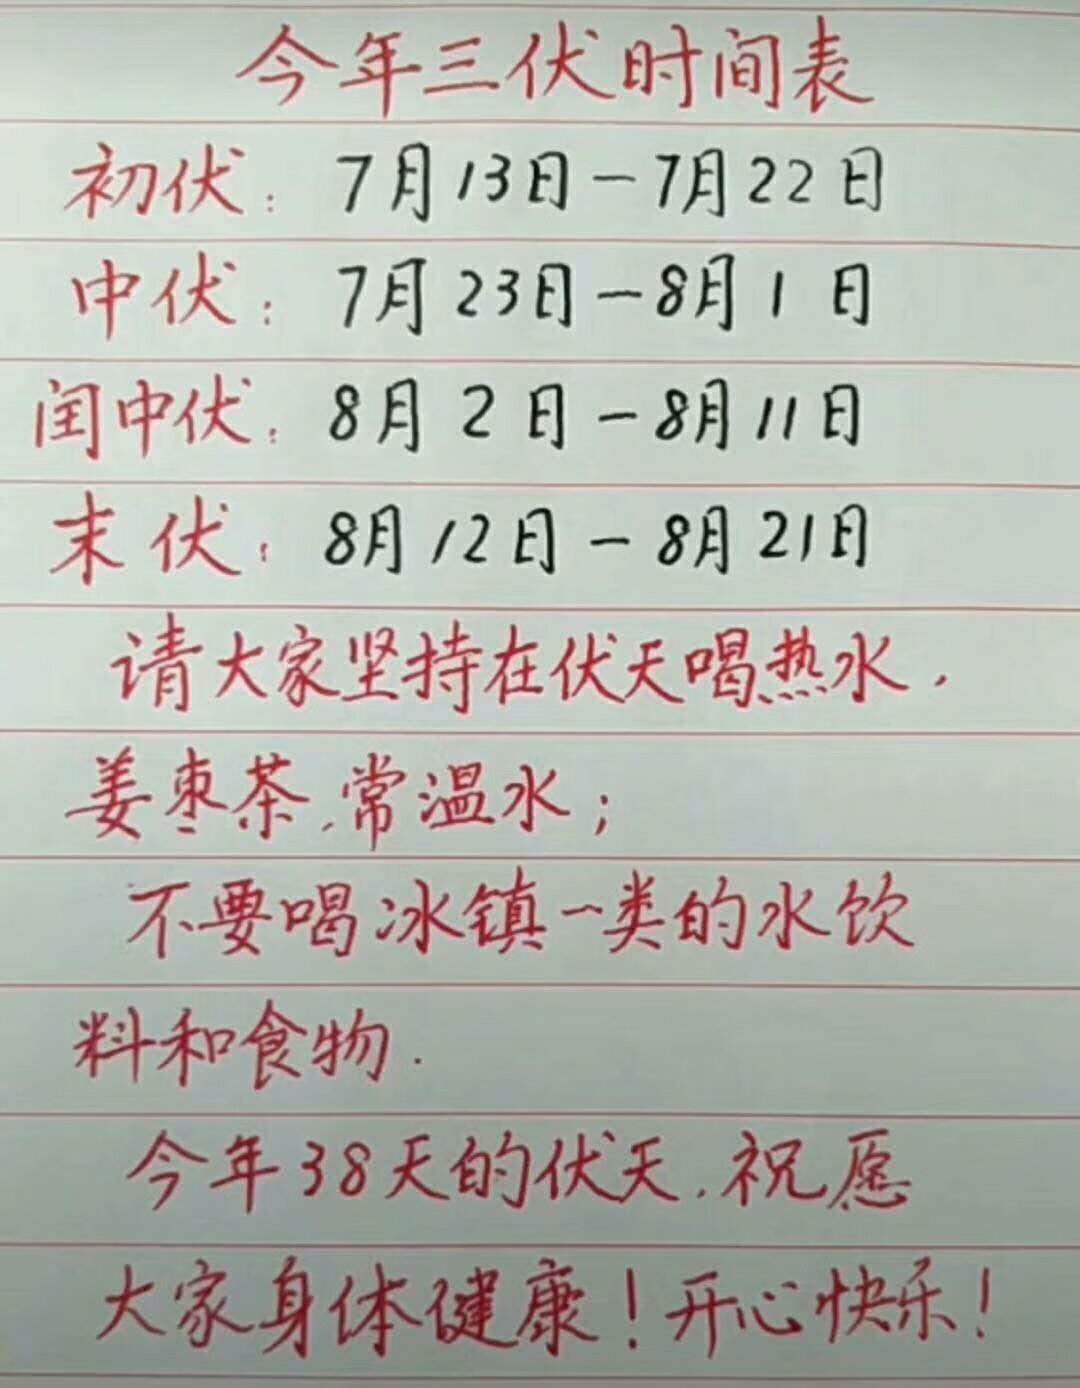 今年三伏时间表
初伏：7月13日－7月22日
中伏：7月23日－8月1日
闰中伏：8月2日－8月11日
末伏：8月12日－8月21日
请大家坚持在伏天喝热水，
姜枣茶，常温水；
不要喝冰镇一类的水饮
料和食物．
今年38天的伏天，祝愿
大家身体健康！开心快乐！